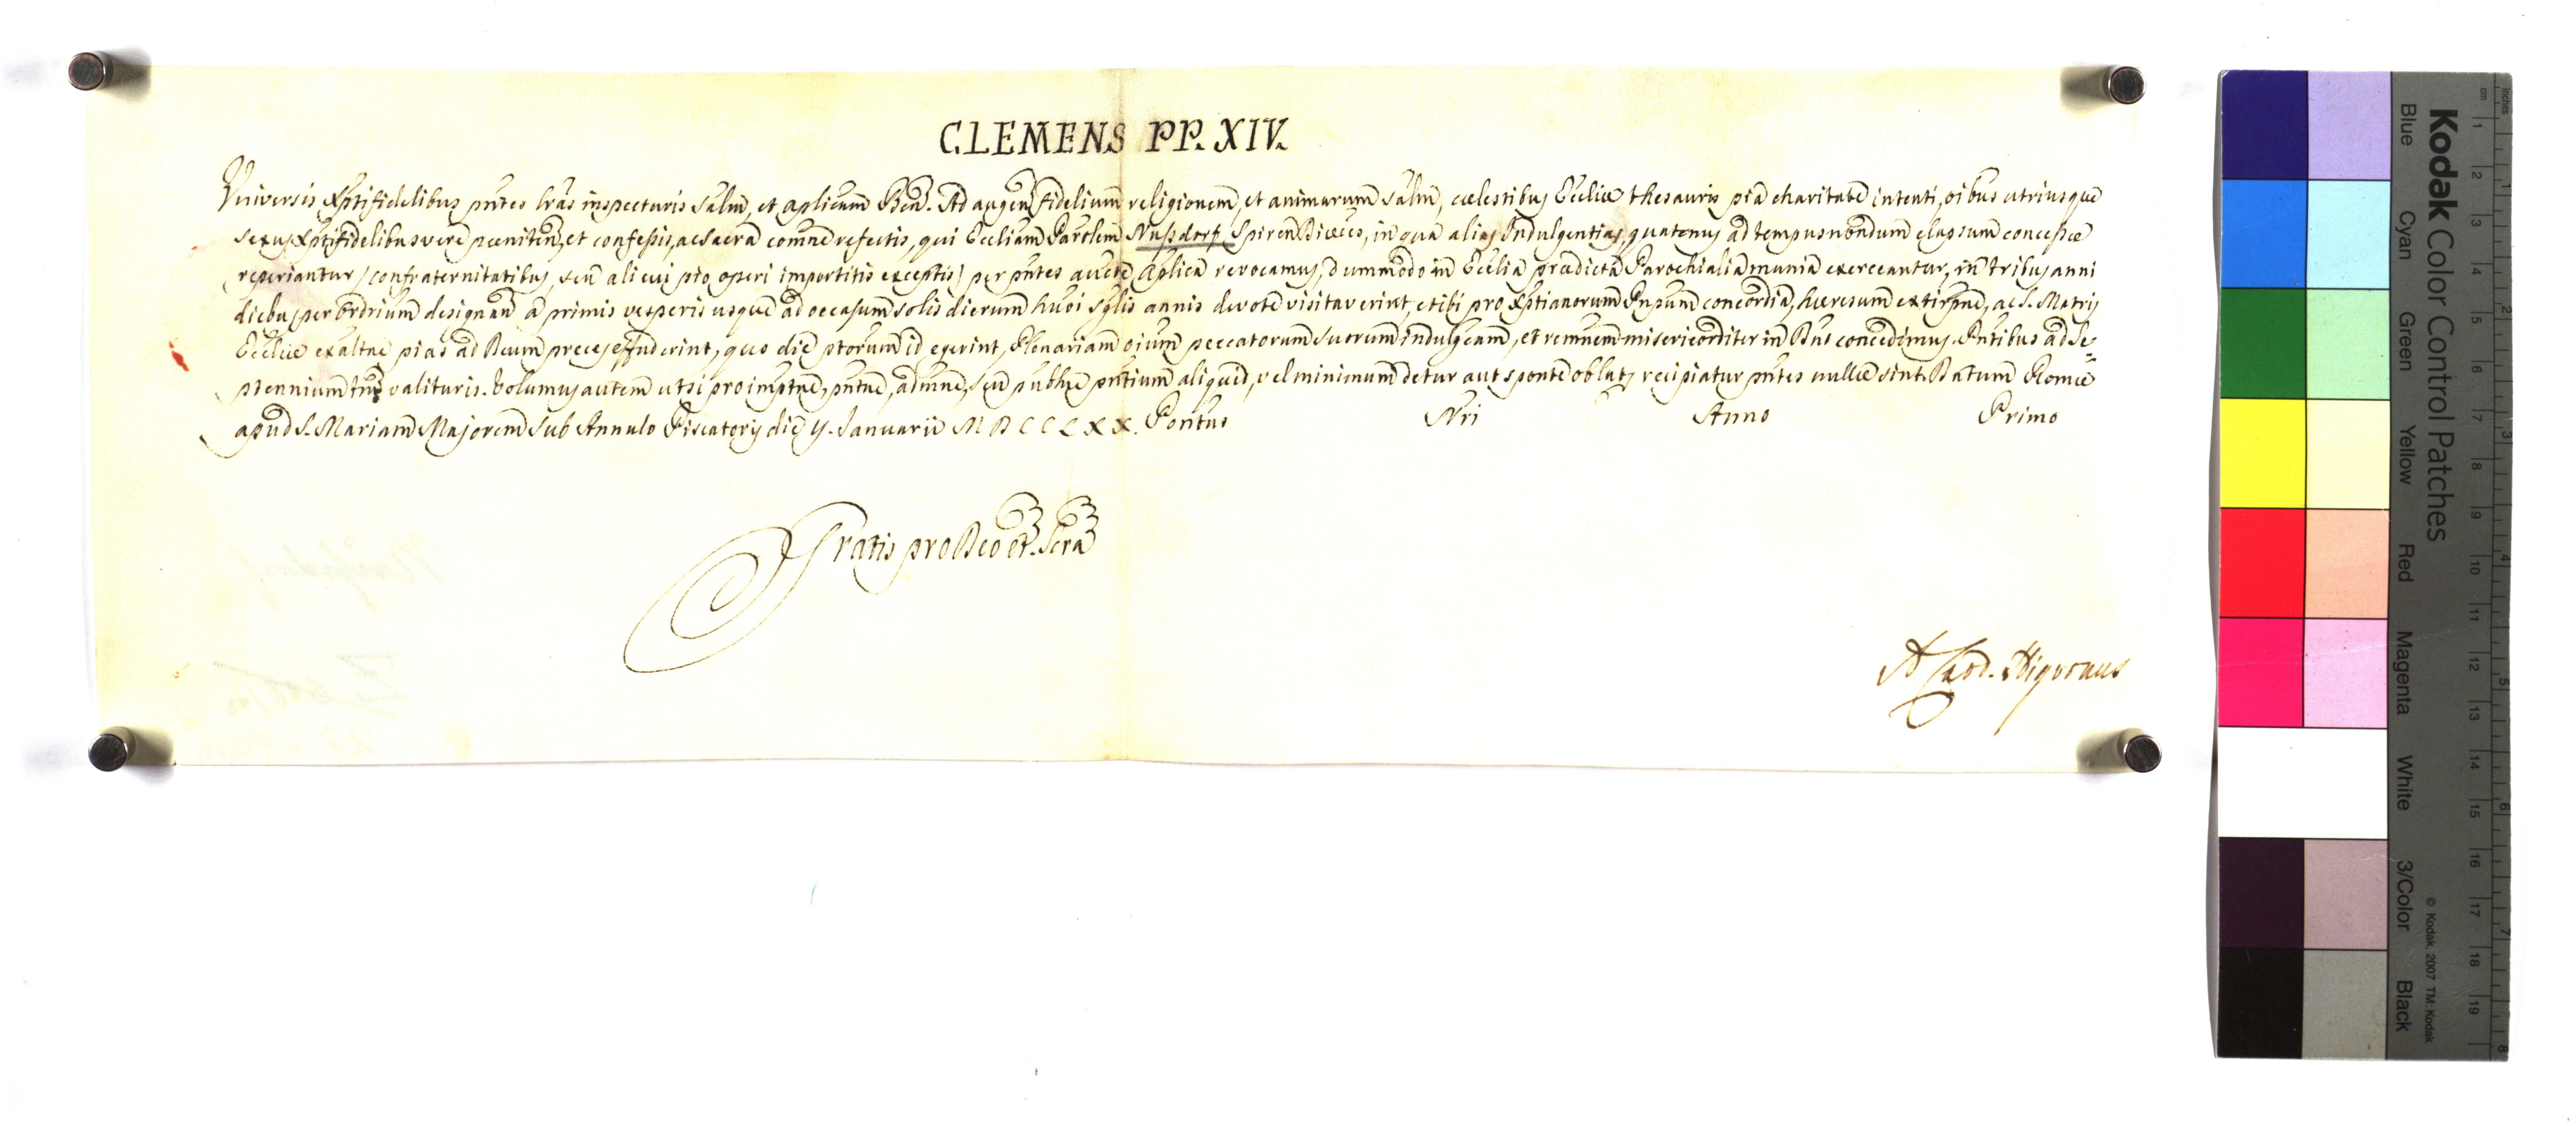 CLEMENS PP. XIV.
Universis Xptifidelibus pntes lras inspecturis Salm, et aplicam Ben. Ad augen fidelium religionem, et animarum salm, cælestibus Ecclie thesauris pia charitate intenti, oibus utriusque
sexus Xptifidelibus vere pœniten, et confessis, ac sacra comne refectis, qui Eccliam Parolem Nussdorf Spiren Diœces, in qua alias Indulgentias, quatenus ad tempus nondum elapsum concessæ
reperiantur (confraternitatibus, seu alicui pio operi impertitis exceptis) per pntes aucte Aplica revocamus, dummodo in Ecclia prædicta Parochialia munia exerceantur, in tribus anni
diebus per Ordrium designan a primis vesperis usque ad occasum solis dierum huoi sglis annis devote visitaverint, et ibi pro Xptianorum Pnpum concordia, hæresum extirpne, ac S. Matris
Ecclie exaltne pias ad Deum preces effuderint, quo die ptorum id egerint, Plenariam oium peccatorum suorum indulgeam, et remnem misericorditer in Dno concedimus. Pntibus ad Se=
ptennium tm valituris. Volumus autem ut si pro impetne, pntne, admne, seu publne pntium aliquid, vel minimum detur aut sponte oblatu recipiatur pntes nullæ sint. Datum Romæ
apud S. Mariam Majorem sub Annulo Piscatoris die Januarii MDCCLXX. Pontus Nri Anno Primo
Gratis pro Deo et Scra
A Card. Nigronus
Kodak Color Control Patches
Blue Cyan Green Yellow Red Magenta White 3/Color Black
© Kodak, 2007 TM: Kodak
cm 1 2 3 4 5 6 7 8 9 10 11 12 13 14 15 16 17 18 19
inches 1 2 3 4 5 6 7 8